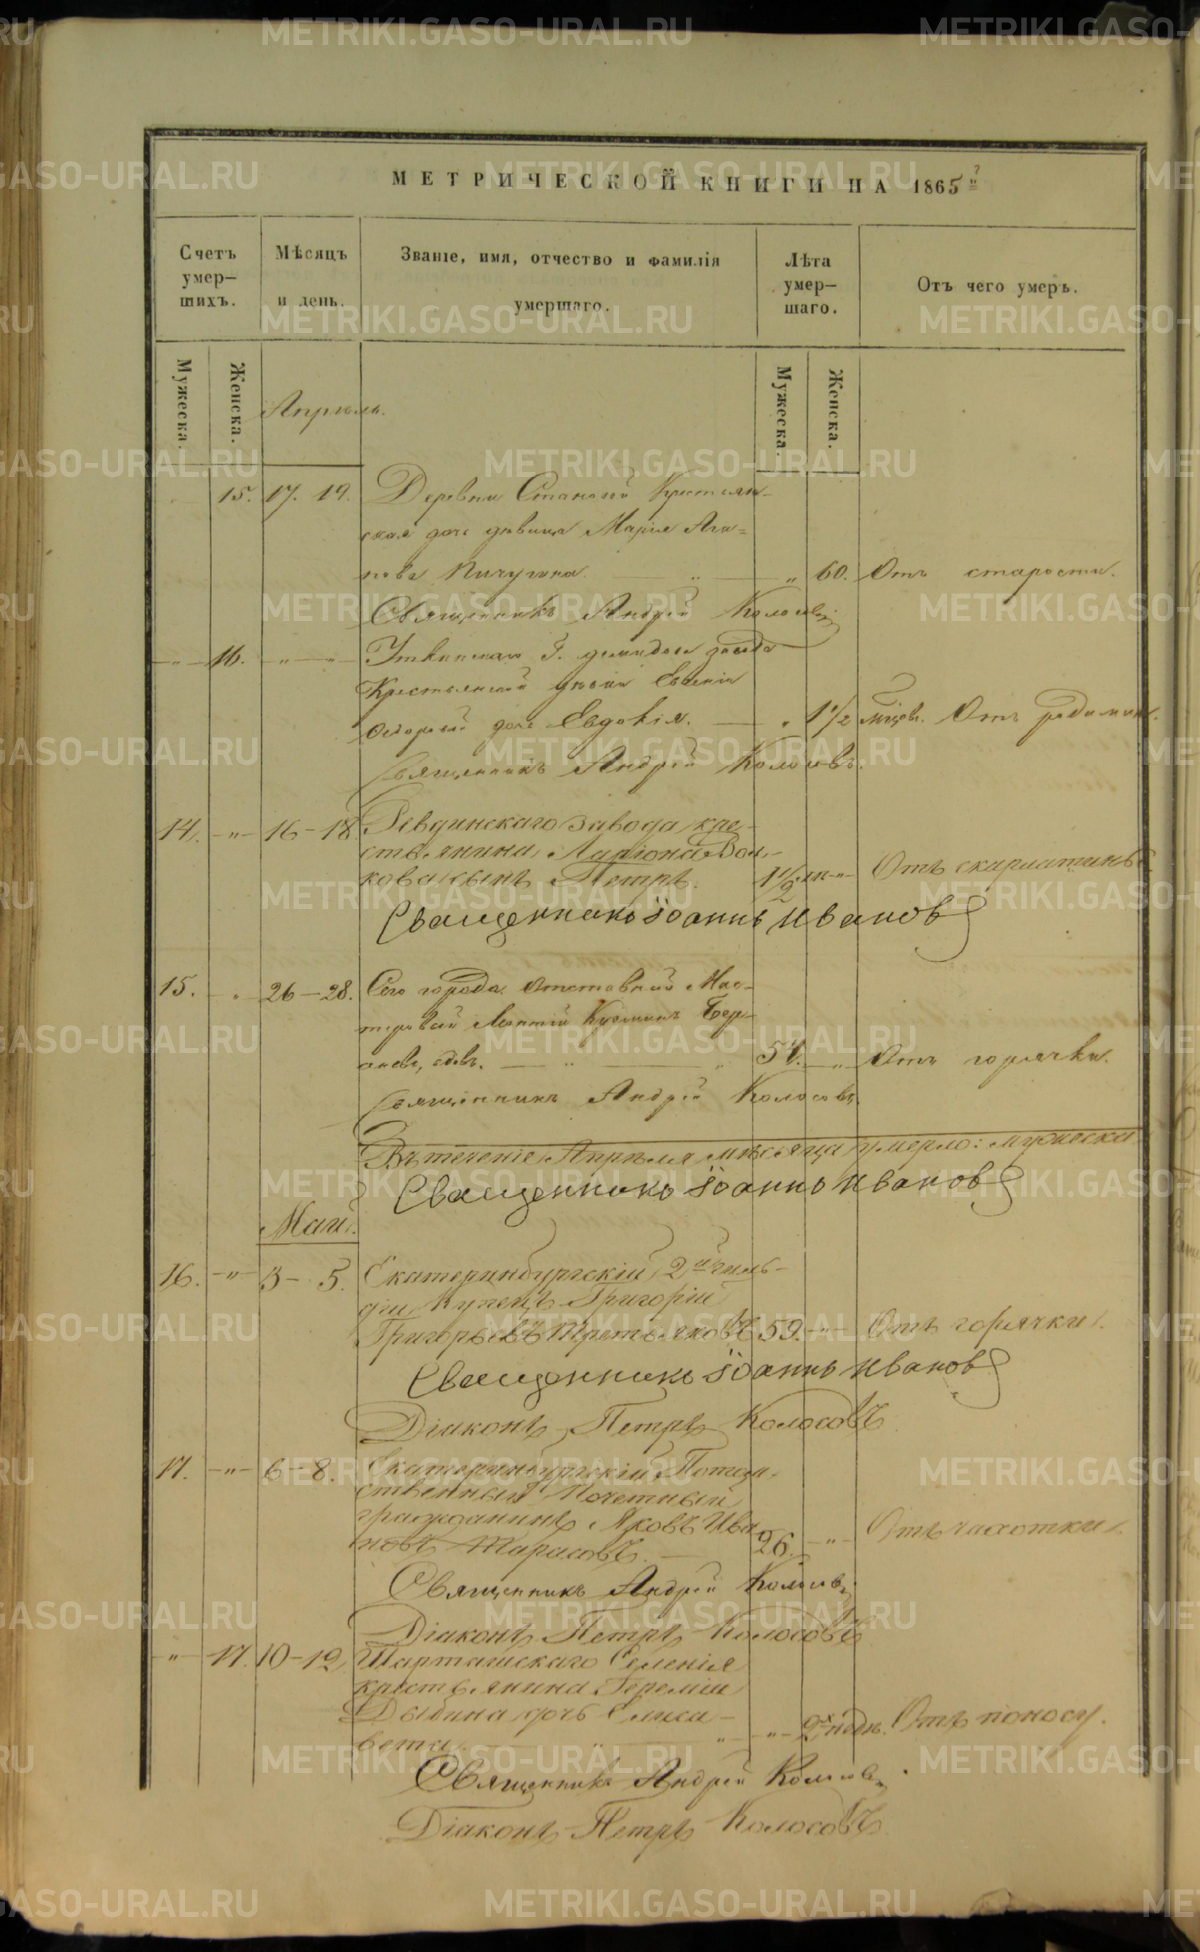 МЕТРИЧЕСКОЙ КНИГИ НА 1865
Счетъ умер–шихъ.
Мѣсяцъ и день.
Званіе, имя, отчество и фамилія умершаго.
Лѣта умер–шаго.
Отъ чего умеръ.
Мужеска. Женска. Мужеска. Женска.
Апрѣль.
15. 17. 19. Деревни Крестьян-
ская дочь дѣвица Марія Ага-
пова Пичугина. 60. Отъ старости.
Священникъ Андрей Колосовъ
16. Уткинскаго завода
Крестьянской Евгеніи
дочь Евдокія. 1 1/2 мѣсяц. Отъ родимца.
Священникъ Андрей Колосовъ.
14. 16–18 Ревдинскаго завода кре-
стьянина Ларіона Вол-
кова сынъ Петръ. 1 1/2 Отъ скарлатины
Священникъ Іоаннъ Ивановъ
15. 26–28. Сего города Отставной Мас-
теровой Кузминъ
вдовъ. 54. Отъ горячки.
Священникъ Андрей Колосовъ
Въ теченіе Апрѣля мѣсяца умерло: мужеска
Священникъ Іоаннъ Ивановъ
Май.
16. 3–5. Екатеринбургскій 2й гиль-
діи Купецъ Григорій
Григорьевъ Третьяковъ 59. Отъ горячки.
Священникъ Іоаннъ Ивановъ
Діаконъ Петръ Колосовъ
17. 6–8. Екатеринбургскій Потом-
ственный Почетный
гражданинъ Яковъ Ива-
новъ Тарасовъ. 26. Отъ чахотки.
Священникъ Андрей Колосовъ
Діаконъ Петръ Колосовъ
17. 10–12 Шарташскаго Селенія
крестьянина Іереміи
Дочь Елиса-
вета. 2х нѣдѣл. Отъ поносу.
Священникъ Андрей Колосовъ
Діаконъ Петръ Колосовъ
METRIKI.GASO-URAL.RU